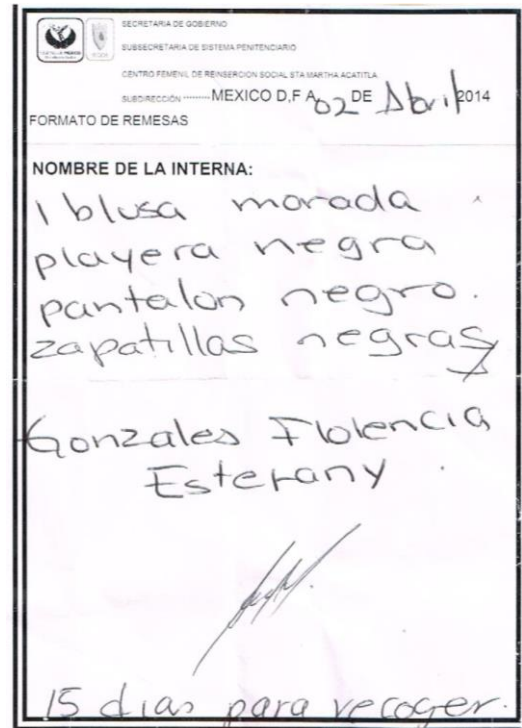 SECRETARIA DE GOBIERNO
SUBSECRETARIA DE SISTEMA PENITENCIARIO
CENTRO FEMENIL DE REINSERCION SOCIAL STA MARTHA ACATITLA
SUBDIRECCIÓN ········ MEXICO D,F A 02 DE Abril 2014
FORMATO DE REMESAS
NOMBRE DE LA INTERNA:
1 blusa morada
playera negra
pantalon negro.
zapatillas negras
Gonzales Florencia
Estefany
15 dias para recoger.